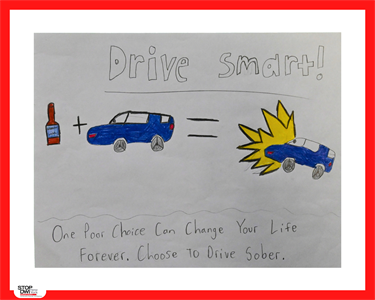 Drive Smart!
+
=
One Poor Choice Can Change Your Life
Forever. Choose To Drive Sober.
STOP
DWI